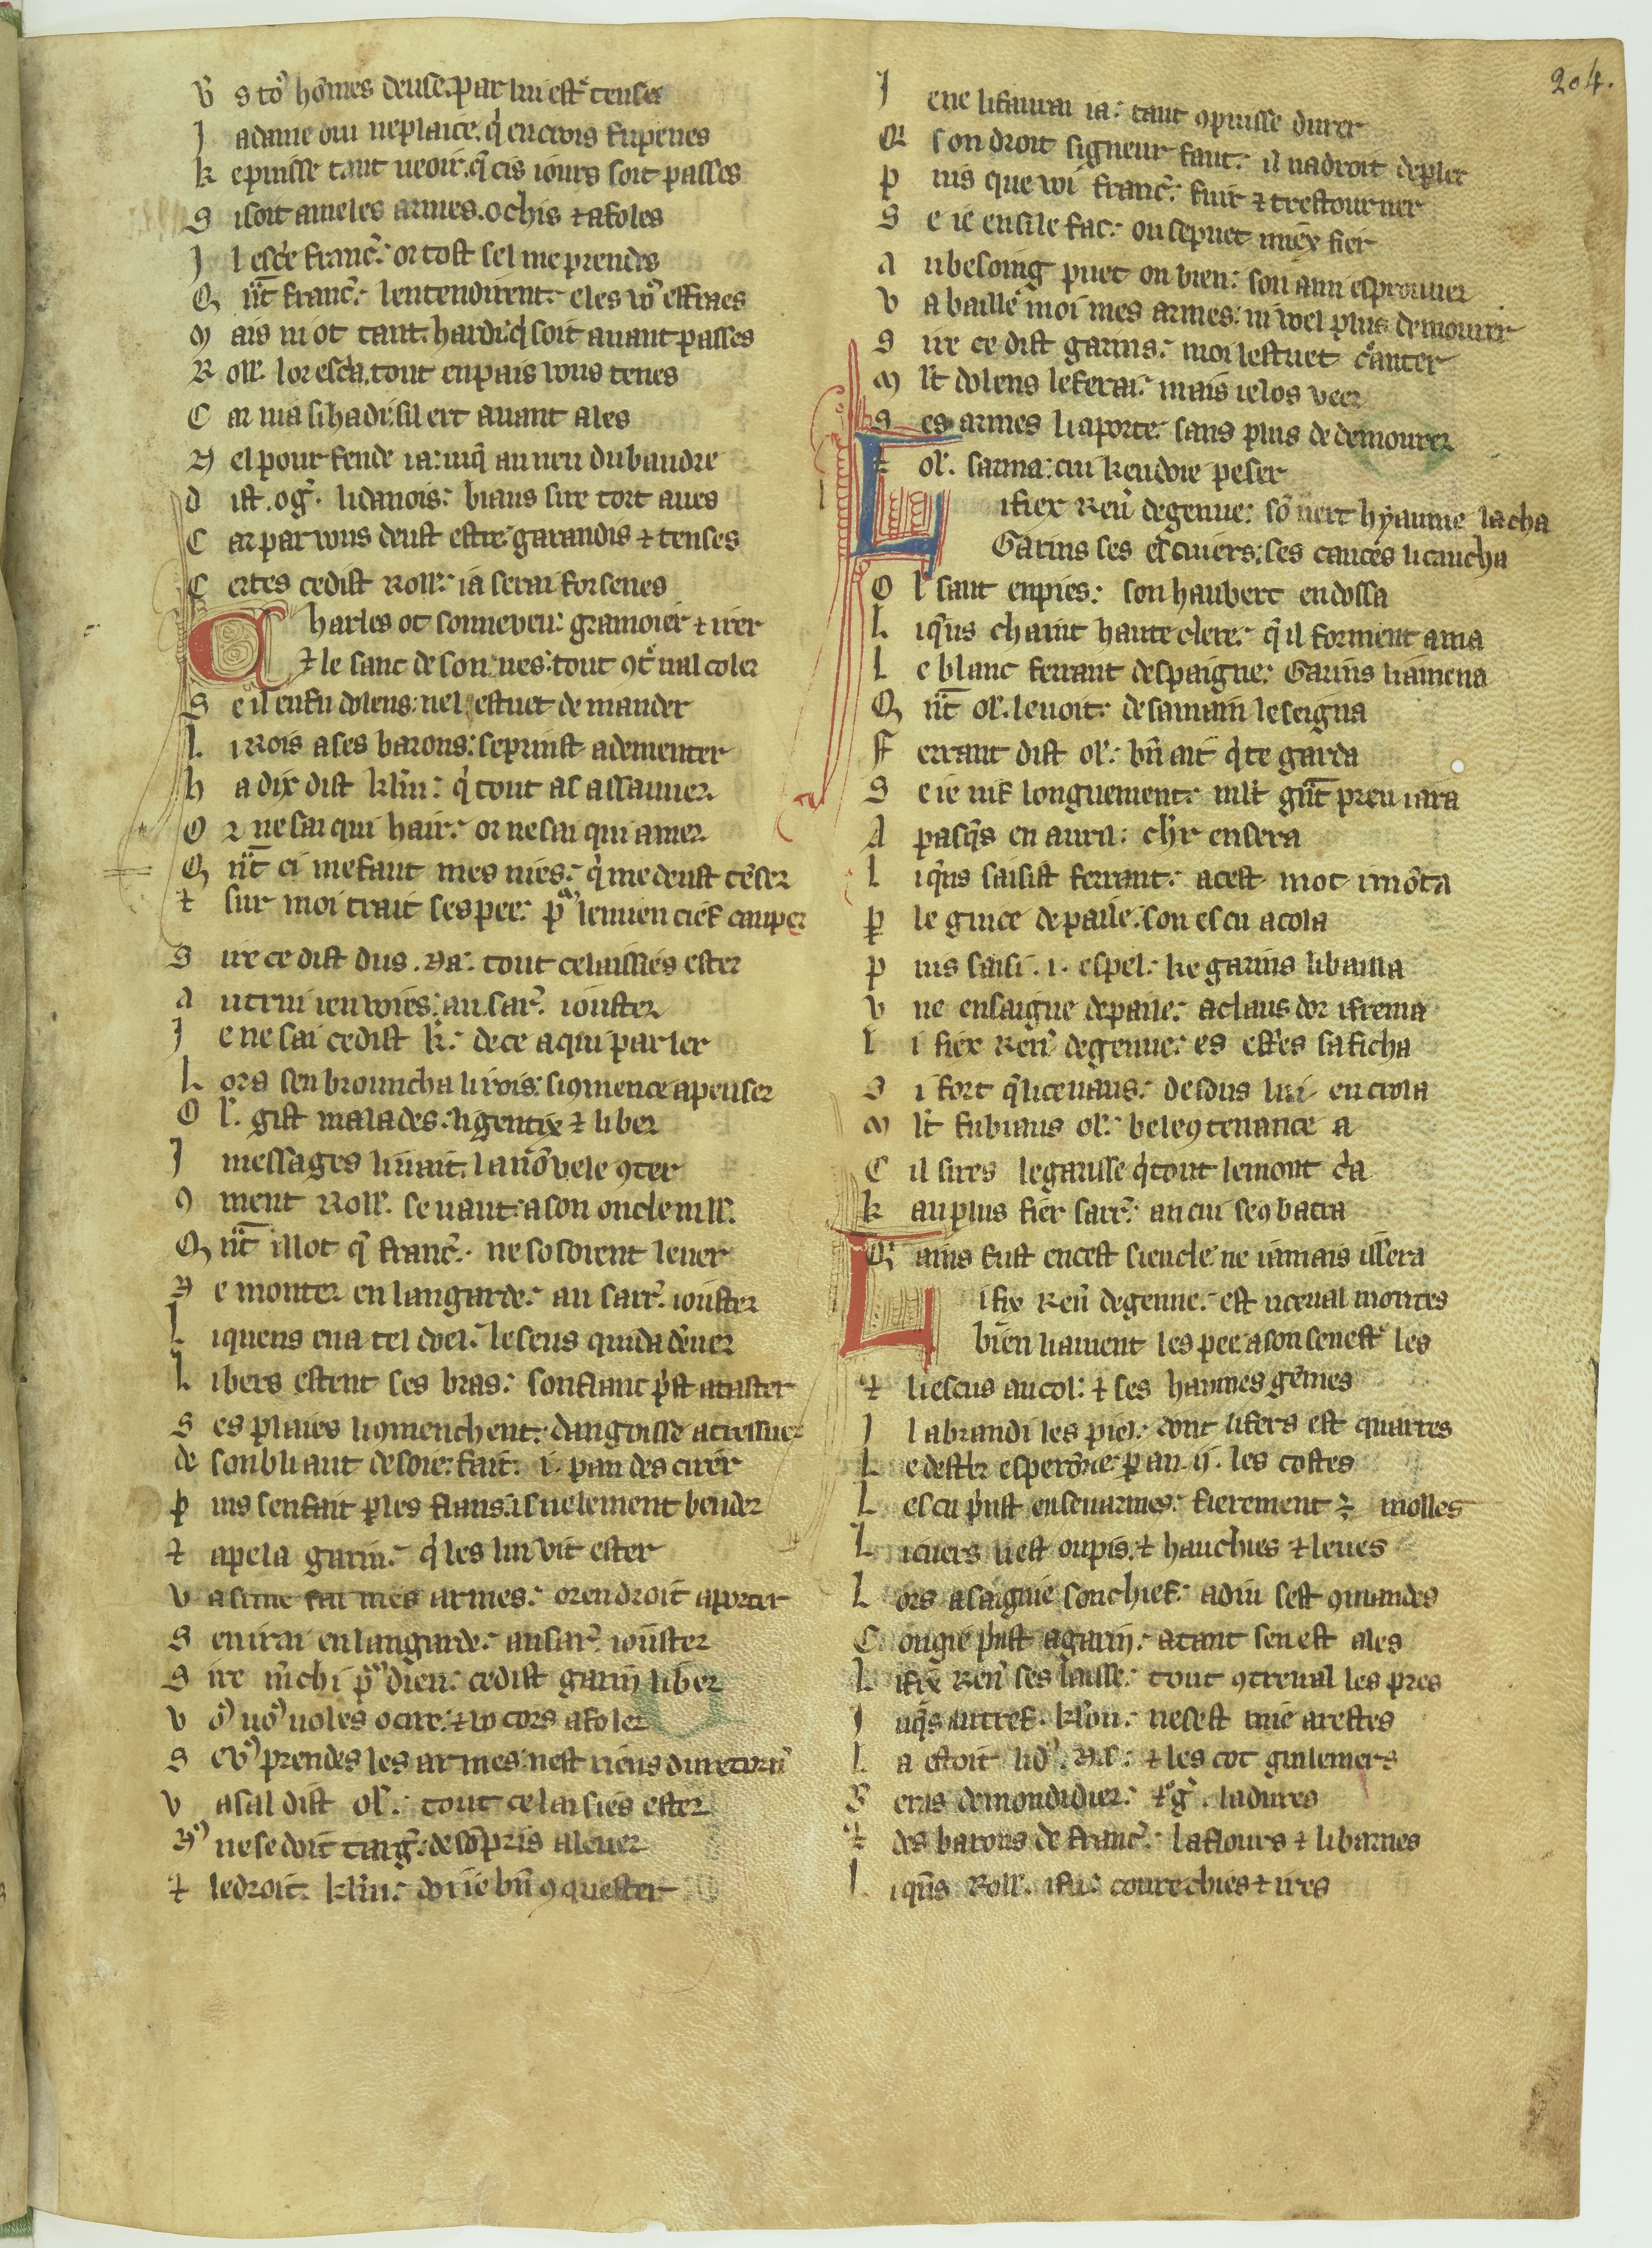 204.
V s to⁹ homes deuse. par lui estͤ tenses
J adame diu ne place. q̇ en crois fu penes
k e puisse tant ueoir. q̃ cis iours soit passes
S i soit a meles armes. ochis ⁊ afoles
J l escͤ francͬ: or tost sel me prendes
Q ñt francͬ: lentendirent: eles vo⁹ effraes
M ais ni ot tant hardi: q̇ soit auant passes
R oll̃. lor escͣa. tout en pais vous tenes
C ar mͣ si hadi: sil ert auant ales
N el pour fende ia: iusq̃ au neu du baudre
d ist. ogͬ. li danois: biaus sire tort aues
C ar par vous deust estre: garandis ⁊ tenses
C ertes ce dist Roll̃: ia serai forsenes
C harles ot son neueu: gramoier ⁊ irer
⁊ le sanc de son nes: tout ꝯtͤ ual coler
S e il en fu dolens: nel estuet demander
L i Rois a ses barons: se prinst a dementer
h a dix dist kl̃m: q̇ tout as a sauuer
O r ne sai qui hair: or ne sai qui amer
Q ñt ci me faut mes nies: q̇ me deust tẽser
⁊ sur moi trait sespee: pͬ le mien cief cauper
S ire ce dist dus. Nͣ: tout ce laissies ester
a utrui i enuoies: au sarͬ. iouster
J e ne sai ce dist k̃: de ce a qui parler
L ors sen brouncha li rois: si ꝯmence a penser
O l̃. gist malades: li gentix ⁊ li ber
J messages li uait: la nouele ꝯter
ꝯ ment Roll̃. se uaut: a son oncle mll̃.
Q ñt il lot q̃ francͬ: ne sosoient leuer
N e monter en langarde: au sarrͬ. iouster
L i quens en a tel doel: le sens quida deruer
L i bers estent ses bras: son flanc pͥst a taster
S es plaies li ꝯmenchent: dangoisse a tressuer
de son bliaut de soie: fait .i. pan descirer
p uis sen fait ꝑ les flans: isnelement bender
⁊ apela garin: q̇ les lui vit ester
V asme fai mes armes: orendroit aporter
S en irai en langarde: au sarͬ. iouster
S ire m̃chi pͬ dieu: ce dist garin li ber
V o⁹ uo⁹ uoles ocire: ⁊ vo cors afoler
S e v⁹ prendes les armes: nest riens du retorͬ
V asal dist ol̃: tout ce laisies ester
N⁹ ne se doit targͬ: de sõ pris aleuer
⁊ le droit kl̃m: doi ie bñ ꝯquester
J e ne li faurai ia: tant ꝯ puisse durer
Q i son droit signeur faut: il na droit de pler
p uis que voi francͬ: fuir ⁊ trestourner
S e ie ensi le fac: ou se puet miex fier
a u besoing puet on bien: son ami esprouuer
V a baille moi mes armes: ni voel plus demourer
S ire ce dist garins: moi lestuet cͬanter
M l̃t dolens le ferai: mais ie los veer
S es armes li aporte: sans plus de demourer
⁊ ol̃. sarma: cui ken doie peser
L i fiex Reñ de genne: sõ uert hyaume lacha
Garins ses escuiers: ses cauces li caucha
O l̃ saut en pies: son haubert endossa
L i q̃ns chaint haute clere: q̃ il forment ama
L e blanc ferrant despaigne: Garins li amena
Q ñt ol̃. le uoit: de sa main le seigna
F errant dist ol̃: bñ ait q̇ te garda
S e ie uif longuement: mlt gñt preu i ara
A pasq̃s en aura: chr̃ en sera
L i q̃ns saisist ferrant: a cest mot i mõta
ꝑ le guice de paile: son escu acola
p uis saisi .i. espel: ke garins li bailla
V ne ensaigne de paile: a claus dor i frema
L i fiex Reñ de genne: es estres sa ficha
S i fort q̃ li ceuaus: desous lui encroia
M l̃t fu biaus ol̃: bele ꝯtenance a
C il sires le garisse q̇ tout le mont cͣa
k au plus fier sarrͬ: ancui se ꝯbatra
Q ains fust en cest siecle: ne iamais issera
L i fix Reñ de genne: est u ceual montes
bien li auient lespee a son senestͤ les
⁊ li escus au col: ⁊ ses haumes gẽmes
J l a brandi lespiel: dont li fers est quarres
L e destͬr esperõne: ꝑ an .ii. les costes
L escu pͥnst en senarmes: fierement ⁊ molles
L i cuers li est ou pis. ⁊ hauchies ⁊ leues
L ors a saignie son chief: a diu sest ꝯmandes
C ongie pͥnst a garin: atant sen est ales
L i fix Reñ ses laisse: tout ꝯtreual les pres
J usq̃s au tref. kl̃on: ne sest mie arestes
L a estoit li d⁹. Nl̃: ⁊ lescot guilemers
G eras de mondidier: ⁊ ogͬ. ladures
⁊ des barons de francͬ: la flours ⁊ li barnes
L i q̃ns Roll̃. i fu: courechies ⁊ ires